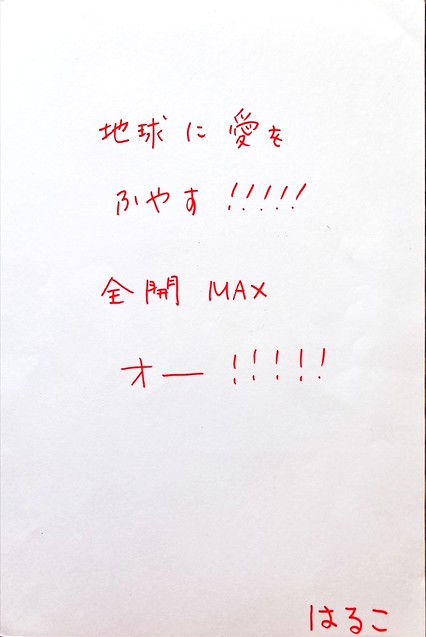 地球に愛を
ふやす!!!!!
全開 MAX
オー!!!!!
はるこ